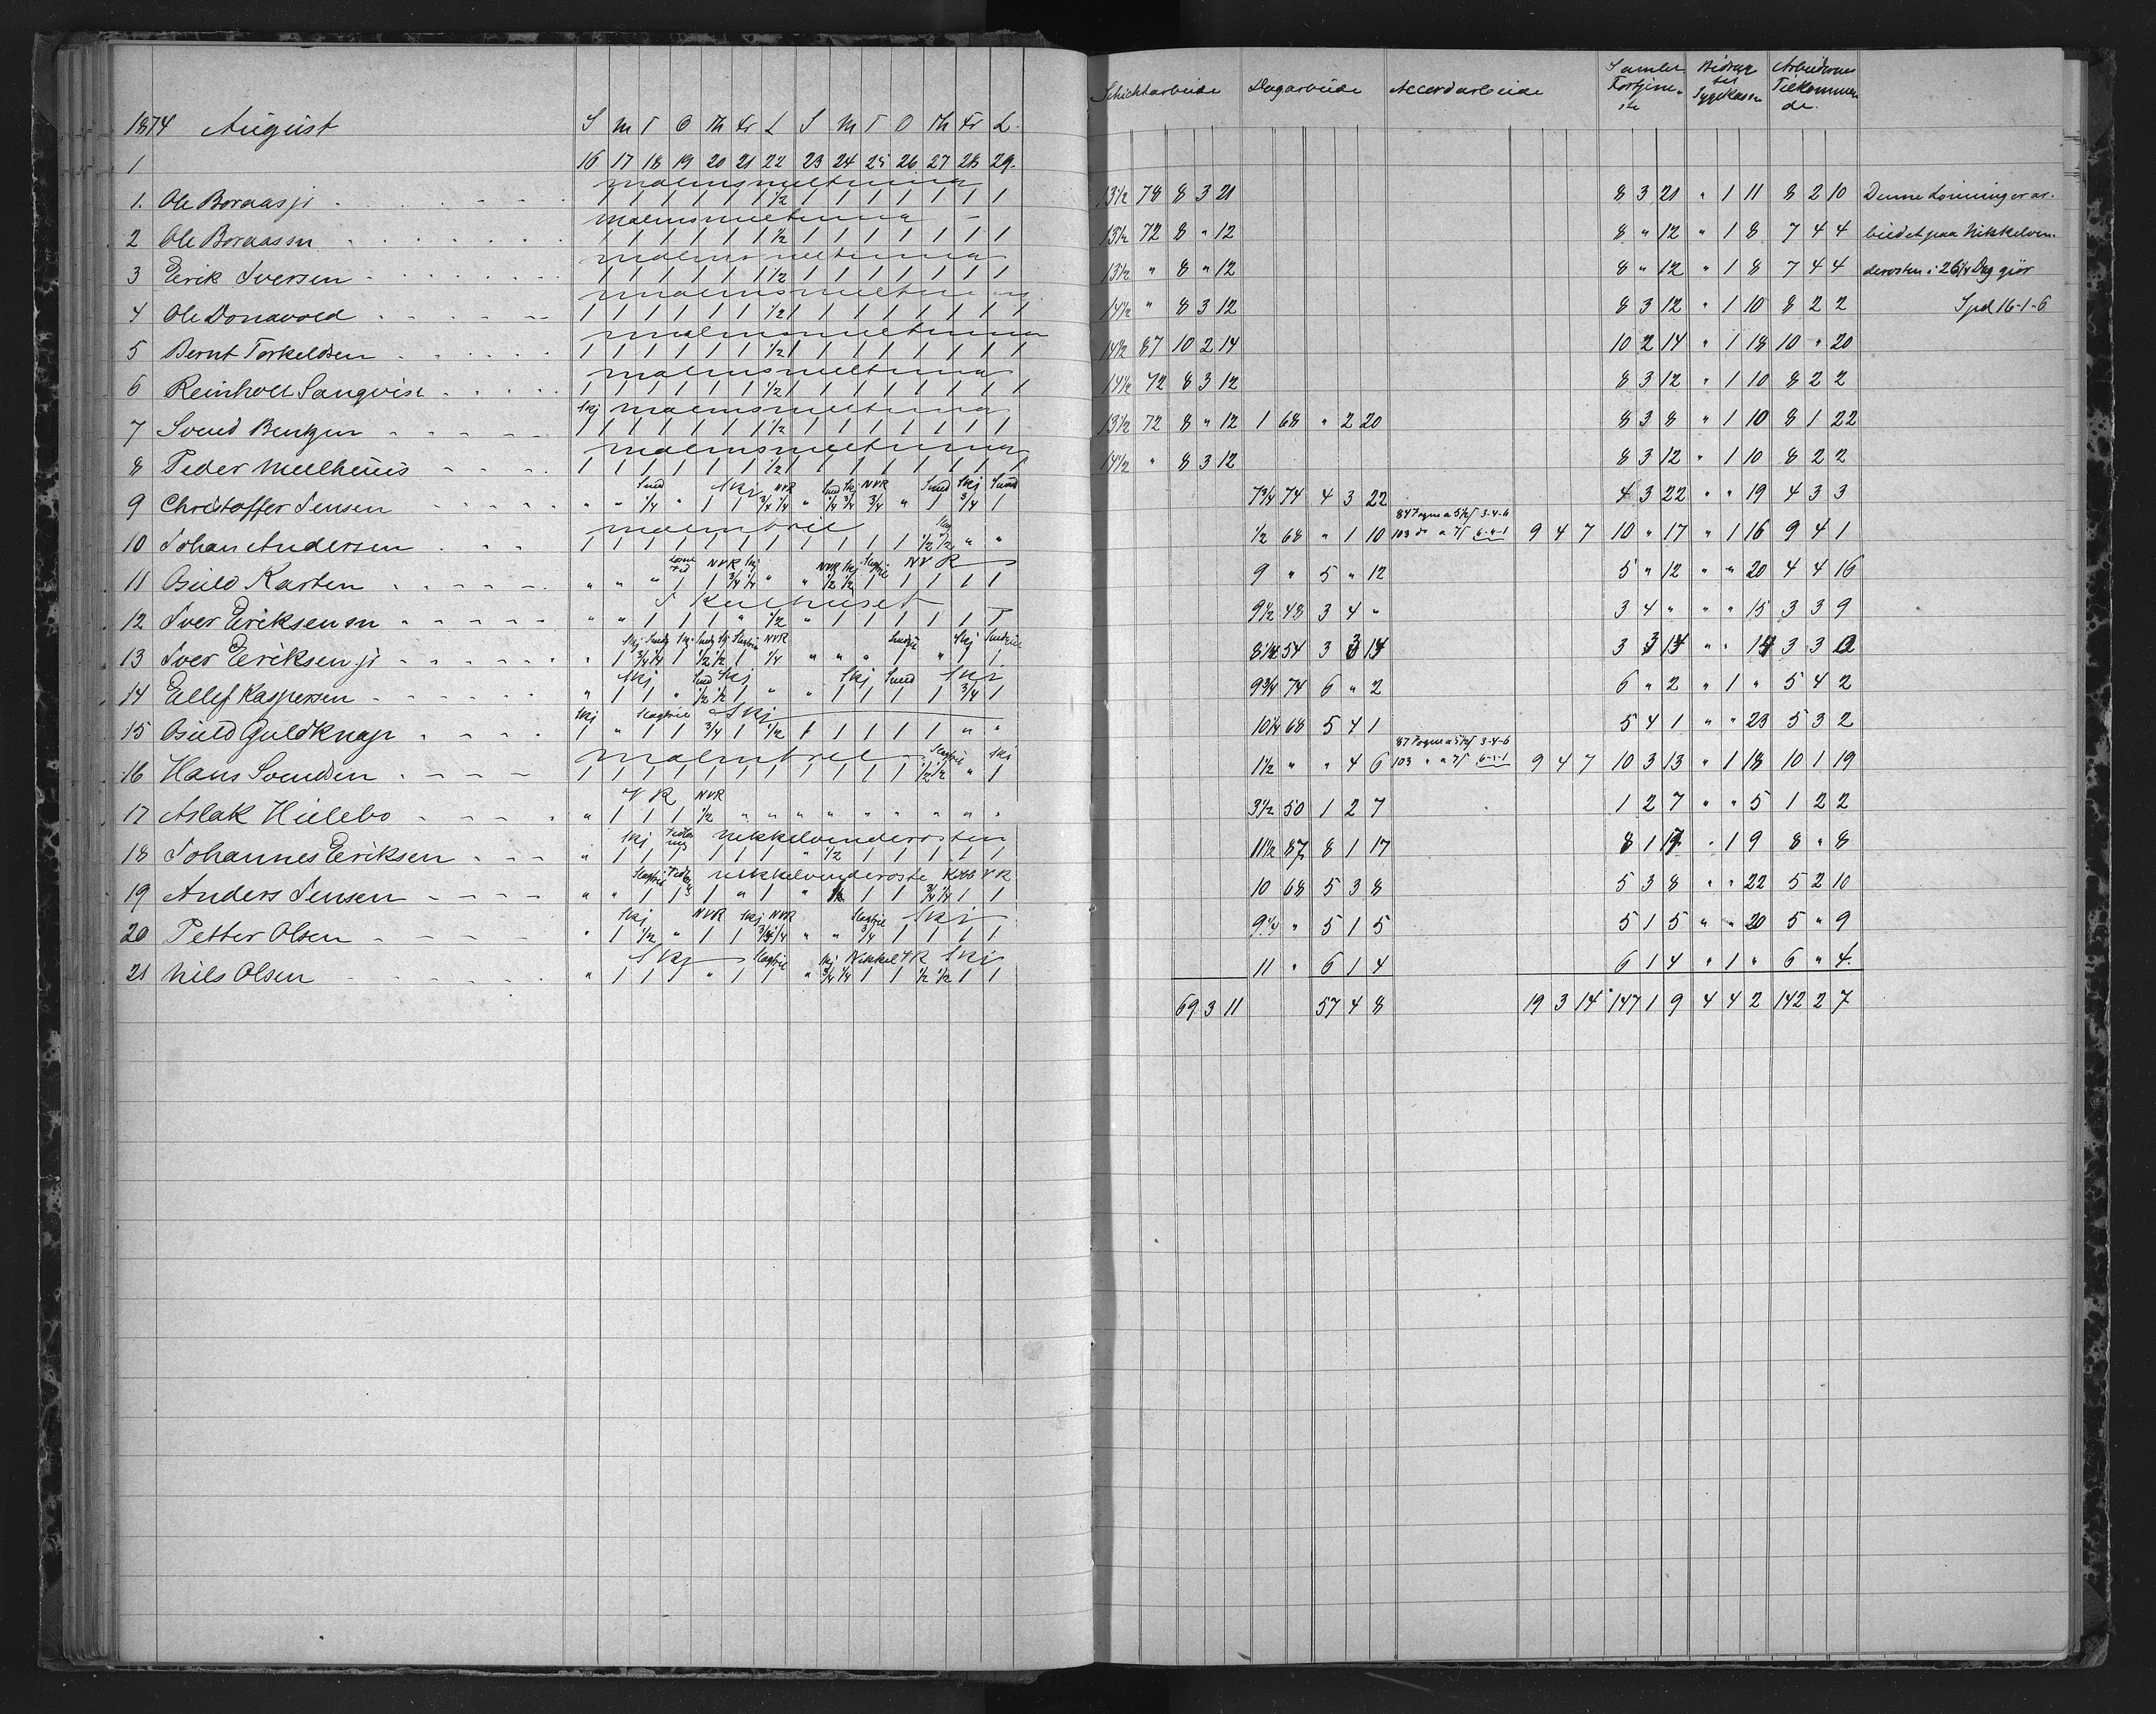 Schichtarbeide Dagarbeide Accordarbeide Samlet Fortjeneste Bidrag til Sygekassen Arbeidernes Tilkommende.
1874 August S M T O Th Fr L S M T O Th Fr L.
1 16 17 18 19 20 21 22 23 24 25 26 27 28 29.
malmsmeltning
1. Ole Boraas ji 1 1 1 1 1 1 1/2 1 1 1 1 1 1 1 13 1/2 78 8 3 21 8 3 21 " 1 11 8 2 10 Denne Lønning er ar-
malmsmeltning
2 Ole Boraas sn 1 1 1 1 1 1 1/2 1 1 1 1 1 1 1 13 1/2 72 8 " 12 8 " 12 " 1 8 7 4 4 beidet paa Nikkelven-
malmsmeltning
3 Erik Iversen 1 1 1 1 1 1 1/2 1 1 1 1 1 1 1 13 1/2 " 8 " 12 8 " 12 " 1 8 7 4 4 derosten i 26 1/4 Dag giør
malmsmeltning
4 Ole Donavold 1 1 1 1 1 1 1/2 1 1 1 1 1 1 1 1 14 1/2 " 8 3 12 8 3 12 " 1 10 8 2 2 Spd 16-1-6
malmsmeltning
5 Bernt Torkeldsen 1 1 1 1 1 1 1/2 1 1 1 1 1 1 1 1 14 1/2 87 10 2 14 10 2 14 " 1 18 10 " 20
malmsmeltning
6 Reinholt Sanqvist 1 1 1 1 1 1 1/2 1 1 1 1 1 1 1 1 14 1/2 72 8 3 12 8 3 12 " 1 10 8 2 2
Skj malmsmeltning
7 Svend Bentzen 1 1 1 1 1 1 1/2 1 1 1 1 1 1 1 1 13 1/2 72 8 " 12 1 68 " 2 20 8 3 8 " 1 10 8 1 22
malmsmeltning
8 Peder Melhuus 1 1 1 1 1 1 1/2 1 1 1 1 1 1 1 1 14 1/2 " 8 3 12 8 3 12 " 1 10 8 2 2
Smd Skj NVR Smd Skj NVR Smd Skj Smd
9 Christoffer Jensen " " 1/4 " 1 1 3/4 1/4 " 1/4 3/4 3/4 " 1 3/4 1 7 3/4 74 4 3 22 4 3 22 " " 19 4 3 3
malmtril
10 Johan Andersen 1 1 1 1 1 1 1 1 1 1 1 1/2 1/2 " " 1/2 68 " 1 10 103 do a 7ſ 6-0-1 9 4 7 10 " 17 " 1 16 9 4 1
NVR Skj NVR Skj Slagtril NVR
11 Guld Karten " " " 1 1 3/4 1/4 " " 1/2 1/2 1 1 1 1 1 9 " 5 " 12 5 " 12 " " 20 4 4 16
I Kulhuset
12 Iver Eriksen sn " " 1 1 1 " 1/2 " 1 1 1 1 1 1 9 1/2 48 3 4 " 3 4 " " " 15 3 3 9
Skj Smdj Skj Smdj Skj Slagtril NVR Skj
13 Iver Eriksen ji " 1 3/4 1/4 1 1/2 1/2 1 1/4 " " " 1 " 1 1 8 1/4 54 3 3 14
Skj Smd Skj Skj Smd Skj
14 Ellef Kaspersen " 1 1 " 1/2 1/2 1 " " 1 1 1 1 3/4 1 9 3/4 74 6 " 2 6 " 2 " 1 " 5 4 2
Skj Slagtril Skj
15 Guld Guldknap 1 " 1 1 3/4 1 1/2 1 1 1 1 1 " " 10 1/4 68 5 4 1 5 4 1 " " 23 5 3 2
malmtril Slagtril Skj
16 Hans Svendsen 1 1 1 1 1 1 1 1 1 1 1 1/2 1/2 " 1 1 1/2 " " 4 6 103 " a 7ſ 6-0-1 9 4 7 10 3 13 " 1 18 10 1 19
V R NVR
17 Aslak Hielebo " 1 1 1 1/2 " " " " " " " " " 3 1/2 50 1 2 7 1 2 7 " " 5 1 2 2
Skj nikkelvenderosten
18 Johannes Eriksen " 1 1 1 1 1 1 " 1/2 1 1 1 1 1 11 1/2 87 8 1 17 8 1 17 " 1 9 8 " 8
Slagtril nikkelvenderoste Kobb V R
19 Anders Jensen " " 1 1 1 " 1 " 1 1 3/4 1/4 1 1 10 68 5 3 8 5 3 8 " " 22 5 2 10
Skj NVR Skj NVR Slagtril Skj
20 Petter Olsen " 1 1/2 " 1 1 3/4 1/4 " " 3/4 1 1 1 1 9 1/4 " 5 1 5 5 1 5 " " 20 5 " 9
Skj Slagtril Skj Nikkel V R Skj
21 Nils Olsen " 1 1 1 " 1 1 " 3/4 1/4 1 1 1/2 1/2 1 1 11 " 6 1 4 6 1 4 " 1 " 6 " 4.
69 3 11 57 4 8 19 3 14 147 1 9 4 4 2 142 2 7